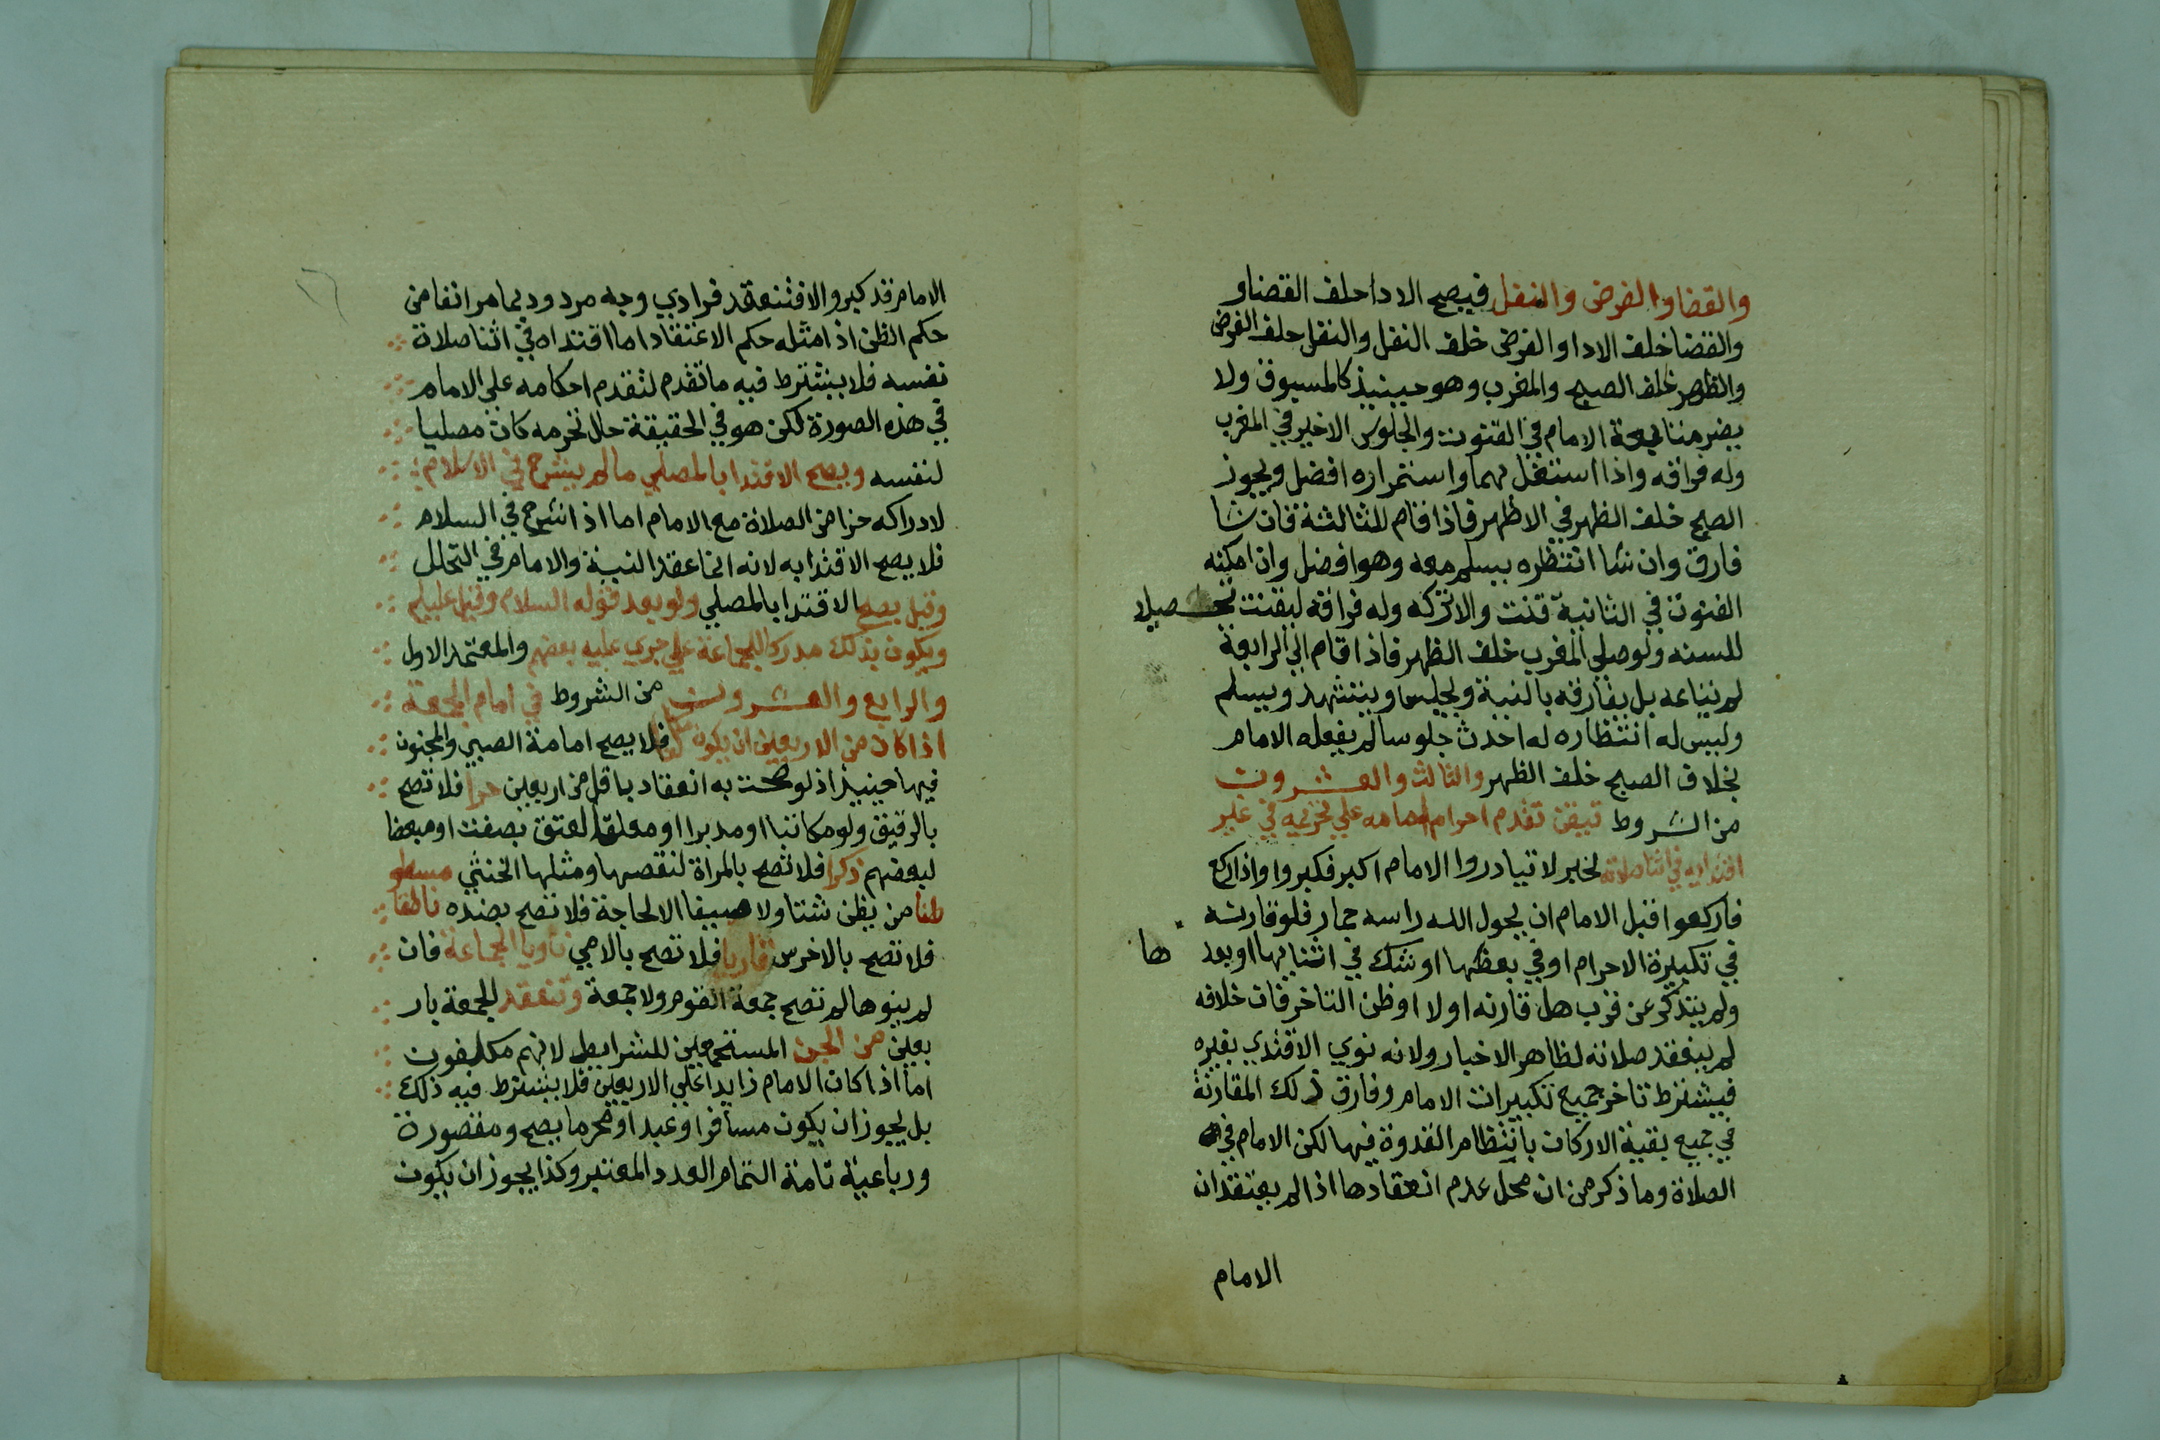 والقضا والفرض والنفل فيصح الادا خلف القضا و
والقضا خلف الادا والفرض خلف النفل والنفل خلف الفرض
والظهر خلف الصبح والمغرب وهو حينيذ كالمسبوق ولا
يضر متابعة الامام في القنوت والجلوس الاخير في المغرب
وله فراقه واذا اشتغل بهما واستمراره افضل ويجوز
الصبح خلف الظهر في الاظهر فاذا قام للثالثة فان شا
فارق وان شا انتظره يسلم معه وهو افضل وان امكنه
القنوت في الثانية قنت والا تركه وله فراقه ليقنت تحصيلا
للسنه ولو صلي المغرب خلف الظهر فاذا قام الي الرابعة
لم يتابعه بل يفارقه بالنية ويجلس ويتشهد ويسلم
وليس له انتظاره له احدث جلوسا لم يفعله الامام
بخلاف الصبح خلف الظهر والثالث والعشرون
من الشروط تيقن تقدم احرام امامه علي تحرمه في غير
اقتدايه في اثنا صلاته لخبر لا تبادروا الامام اكبر فكبروا واذا ركع
فاركعوا قبل الامام ان يحول الله راسه حمار فلو قارنه
في تكبيرة الاحرام او في بعضها او شك في اثنايها او بعدها
ولم يتذكر عن قرب هل قارنه او لا او ظن التاخر فان خلافه
لم ينعقد صلاته لظاهر الاخبار ولانه نوي الاقتدي بغيره
فيشترط تاخر جميع تكبيرات الامام وفارق ذلك المقارنة
في جميع بقية الاركان بانتظام القدوة فيها لكن الامام في
الصلاة وما ذكر من ان محل عدم انعقادها اذا لم يعتقد ان
الامام
الامام قد كبر والا فتنعقد فرادي وجه مردود بما مر انفا من
حكم الظن اذ امثله حكم الاعتقاد اما اقتداه في اثنا صلاة
نفسه فلا يشترط فيه ما تقدم لتقدم احكامه علي الامام
في هذه الصورة لكن هو في الحقيقة حال تحرمه كان مصليا
لنفسه ويصح الاقتدا بالمصلي ما لم يشرع في الاسلام
لادراكه جزا من الصلاة مع الامام اما اذا شرع في السلام
فلا يصح الاقتدا به لانه انما عقد النية والامام في التحلل
وقيل يصح الاقتدا بالمصلي ولو بعد قوله السلام وقبل عليكم
ويكون بذلك مدركا للجماعة علي جري عليه بعضهم والمعتمد الاول
والرابع والعشرون من الشروط في امام الجمعة
اذا كان من الاربعين ان يكون فلا يصح امامة الصبي والمجنون
فيها حينيذ اذ لو صحت به انعقاد باقل من اربعين حرا فلا تصح
بالرقيق ولو مكاتبا او مدبرا او معلق العتق بصفت او مبعضا
لبعضهم ذكرا فلا تصح بالمراة لنقصها ومثلها الخنثي
من يظن شتا ولا صيفا الا لحاجة فلا تصح بضده ناطقا
فلا تصح بالاخرس قاريا فلا تصح بالامي ناويا الجماعة فان
لم ينوها لم تصح جمعة القوم ولا جمعة وتنعقد الجمعة بار
بعين من الجن المستجمعين للشرايط لانهم مكلفون
اما اذا كان الامام زايدا علي الاربعين فلا يشترط فيه ذلك
بل يجوز ان يكون مسافرا وعبدا ومحرما بصح ومقصورة
ورباعية تامة التمام العدد المعتبر وكذا يجوز ان يكون